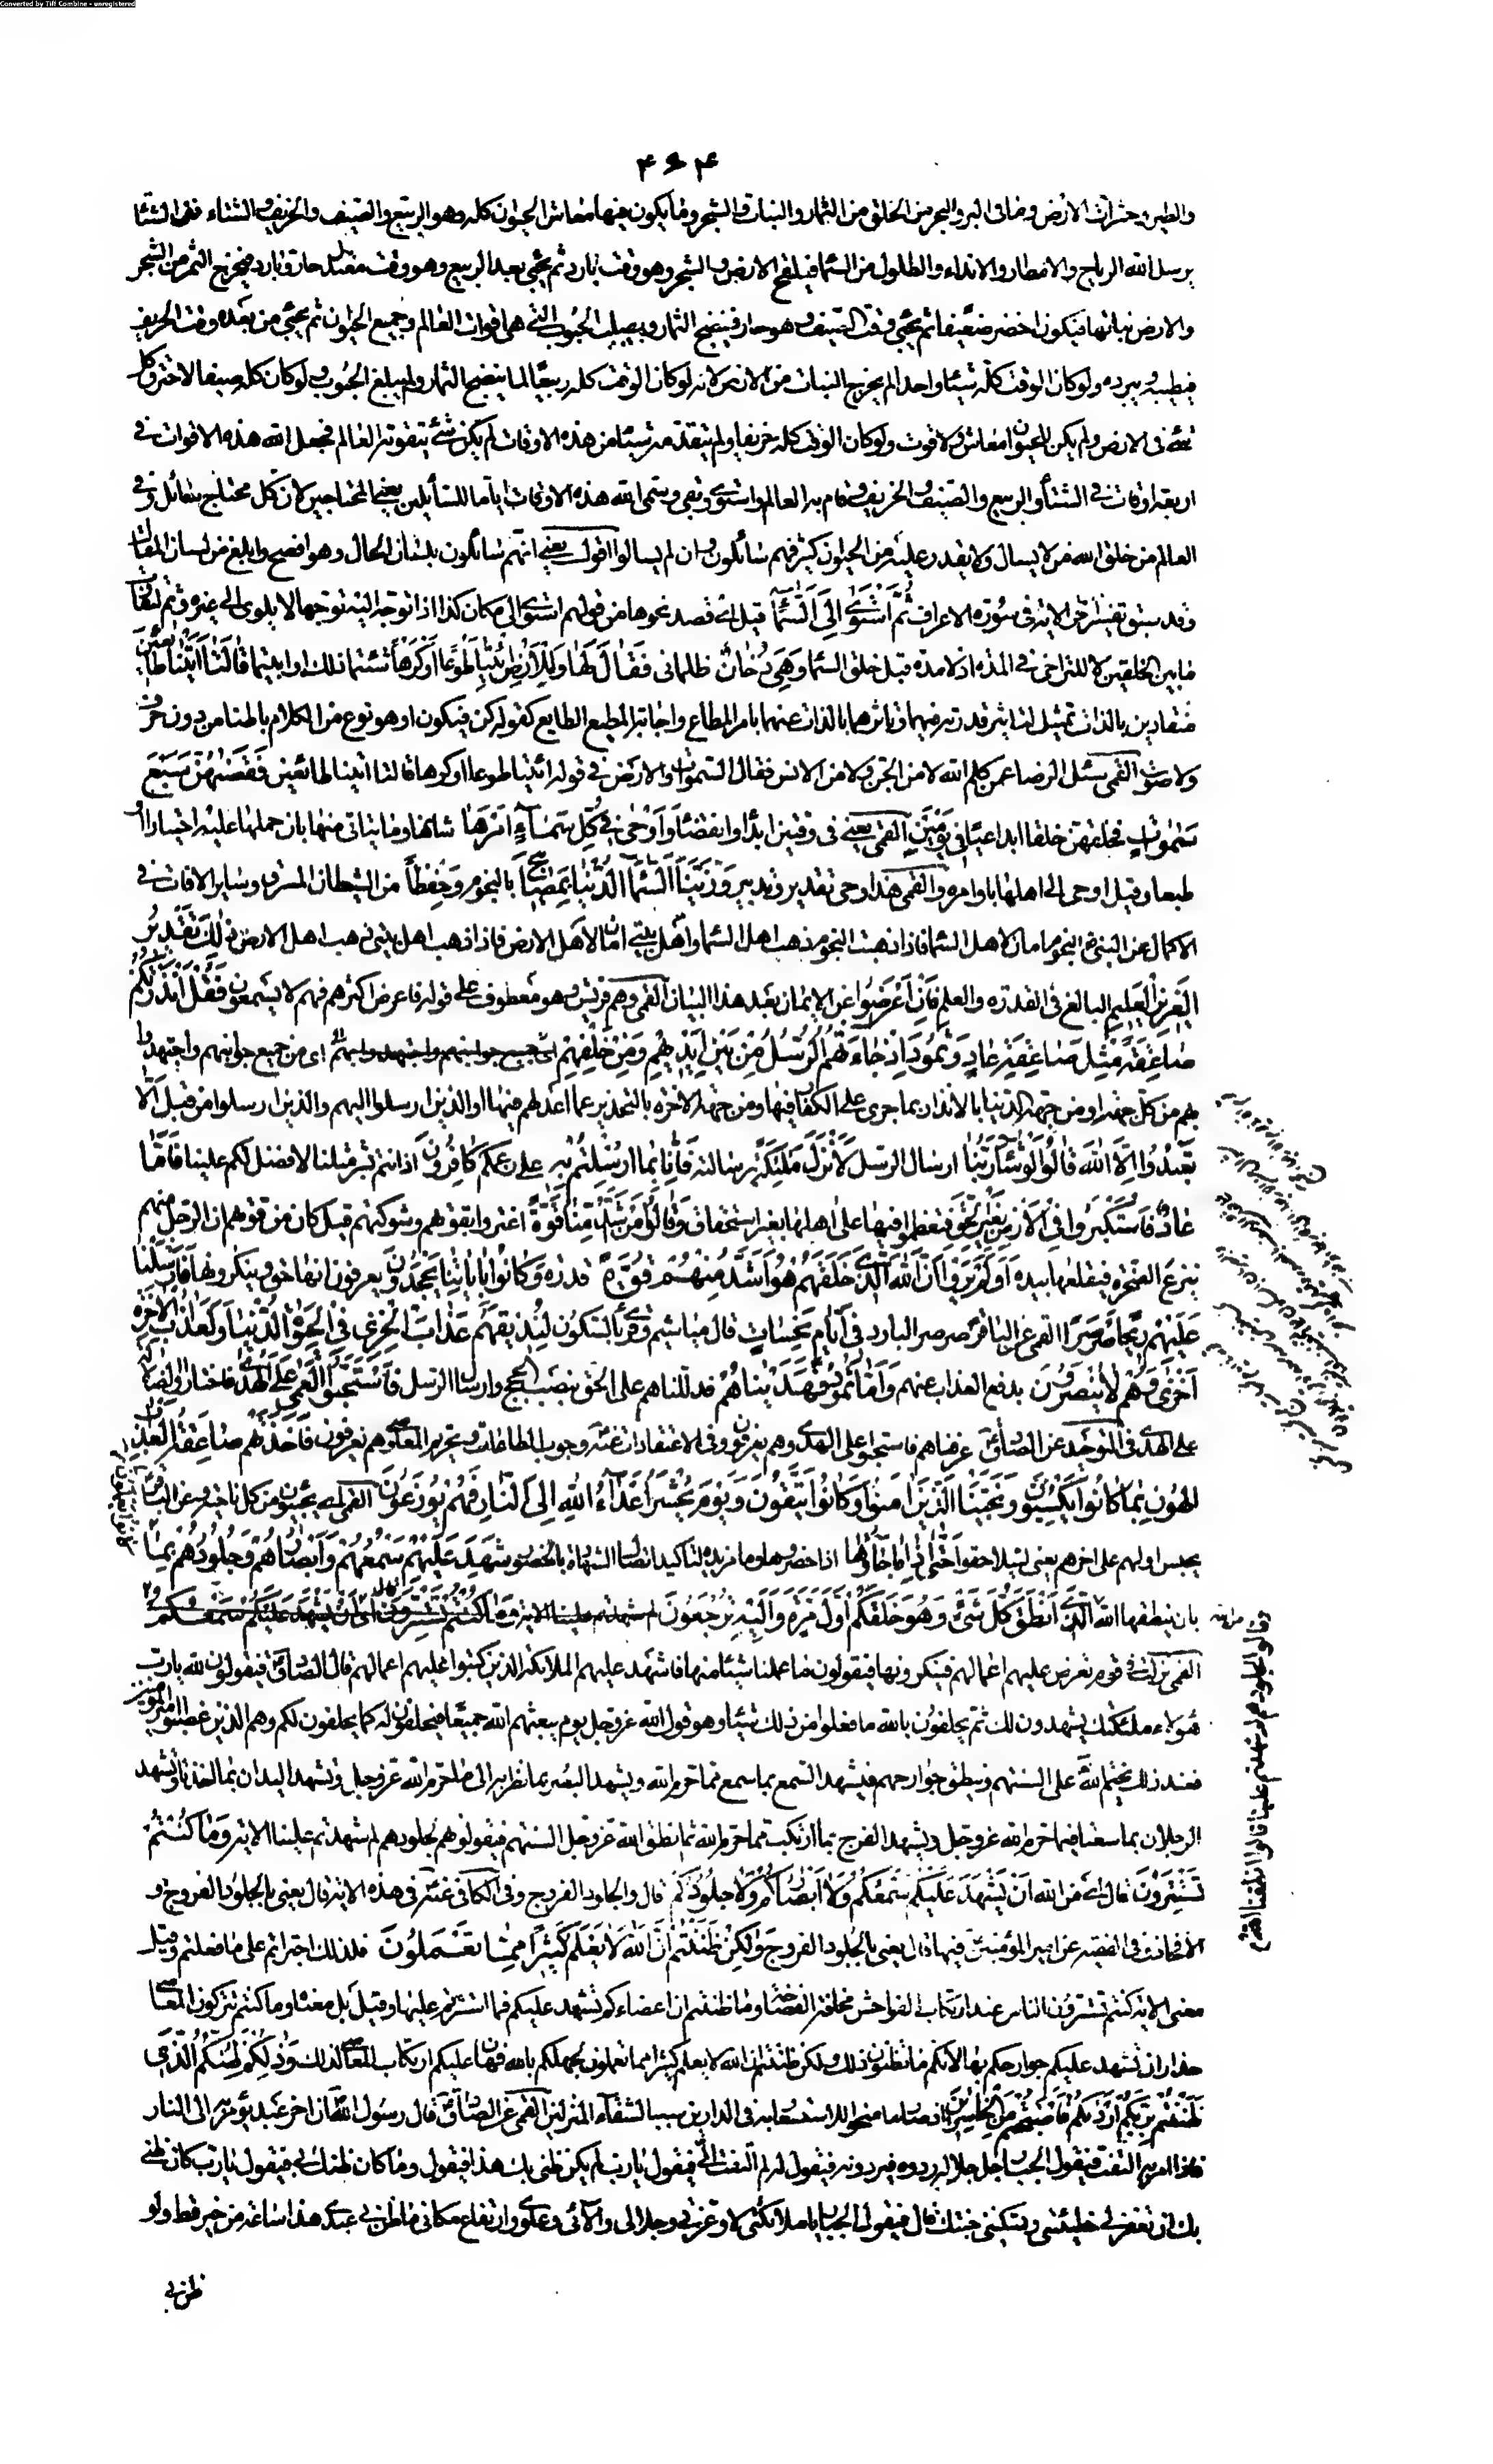 Converted by Tiff Combine - unregistered
۴۶۴
والطير وحشرات الارض وما فى البر والبحر من الخلق من الثمار والنبات والشجر وما يكون فيها معاش الحيوان كله وهو الربيع والصيف والخريف والشتاء ففى الشتا
يرسل الله الرياح والامطار والانداء والطلول من السماء فيلقح الارض والشجر وهو وقت بارد ثم يجئ بعده الربيع وهو وقت معتدل حار وبارد فيخرج الثمر من الشجر
والارض نباتها فيكون اخضر ضعيفا ثم يجئ وقت الصيف وهو حار فينضج الثمار ويصلب الحبوب التى هى اقوات العالم وجميع الحيوان ثم يجئ من بعده وقت الخريف
فيطيبه ويبرده ولو كان الوقت كله شيئا واحدا لم يخرج النبات من الارض لانه لو كان الوقت كله ربيعا لما ينضج الثمار ولم يبلغ الحبوب ولو كان كله صيفا لاحترق كل
شئ فى الارض ولم يكن للحيوان معاش ولا قوت ولو كان الوقت كله خريفا ولم يتقدمه شئ من هذه الاوقات لم يكن شئ يتقوته العالم فجعل الله هذه الاقوات فى
اربعة اوقات فى الشتاء والربيع والصيف والخريف وقام به العالم واستوى وبقى وسمى الله هذه الاوقات اياما للسائلين يعنى المحتاجين لان كل محتاج سائل وفى
العالم من خلق الله من لا يسال ولا يقدر عليه من الحيوان كثير فهم سائلون وان لم يسالوا اقول يعنى انهم سائلون بلسان الحال وهو افصح وابلغ من لسان المقال
وقد سبق تفسير اخر الاية فى سورة الاعراف ثُمَّ اسْتَوَى إِلَى السَّمَاءِ قيل اى قصد نحوها من قولهم استوى الى مكان كذا اذا توجه اليه توجها لا يلوى الى غيره وثم لتفاوت
ما بين الخلقين لا للتراخى فى المدة اذ لا مدة قبل خلق السماء وَهِيَ دُخَانٌ ظلمانى فَقَالَ لَهَا وَلِلْأَرْضِ ائْتِيَا طَوْعًا أَوْ كَرْهًا شئتما ذلك او ابيتما قَالَتَا أَتَيْنَا طَائِعِينَ
منقادين بالذات تمثيل لتاثير قدرته فيهما وتاثرهما بالذات عنها بامر المطاع واجابة المطيع الطايع كقوله كن فيكون او هو نوع من الكلام باطنا من دون حرف
ولا صوت القمى سئل الرضا عمن كلم الله لا من الجن ولا من الانس فقال السموات والارض فى قوله ائتيا طوعا او كرها قالتا اتينا طائعين فَقَضَاهُنَّ سَبْعَ
سَمَاوَاتٍ فخلقهن خلقا ابداعيا فِي يَوْمَيْنِ القمى يعنى فى وقتين ابداء وانقضاء وَأَوْحَى فِي كُلِّ سَمَاءٍ أَمْرَهَا شانها وما يتاتى منها بان حملها عليه اختيارا او
طبعا وقيل اوحى الى اهلها باوامره والقمى هذا وحى تقدير وتدبير وَزَيَّنَّا السَّمَاءَ الدُّنْيَا بِمَصَابِيحَ بالنجوم وَحِفْظًا من الشيطان المسترق وساير الافات فى
الاكمال عن النبى النجوم امان لاهل السماء فاذا ذهبت النجوم ذهب اهل السماء واهل بيتى امان لاهل الارض فاذا ذهب اهل بيتى ذهب اهل الارض ذَلِكَ تَقْدِيرُ
الْعَزِيزِ الْعَلِيمِ البالغ فى القدرة والعلم فَإِنْ أَعْرَضُوا عن الايمان بعد هذا البيان القمى وهم قريش وهو معطوف على قوله فاعرض اكثرهم فهم لا يسمعون فَقُلْ أَنْذَرْتُكُمْ
صَاعِقَةً مِثْلَ صَاعِقَةِ عَادٍ وَثَمُودَ إِذْ جَاءَتْهُمُ الرُّسُلُ مِنْ بَيْنِ أَيْدِيهِمْ وَمِنْ خَلْفِهِمْ اى من جميع جوانبهم واجتهدوا
بهم من كل جهة او من جهة الدنيا بالانذار بما جرى على الكفار فيها ومن جهة الاخرة بالتحذير عما اعد لهم فيها او الذين ارسلوا اليهم والذين ارسلوا من قبل أَلَّا
تَعْبُدُوا إِلَّا اللَّهَ قَالُوا لَوْ شَاءَ رَبُّنَا ارسال الرسل لَأَنْزَلَ مَلَائِكَةً برسالته فَإِنَّا بِمَا أُرْسِلْتُمْ بِهِ على زعمكم كَافِرُونَ اذ انتم بشر مثلنا لا فضل لكم علينا فَأَمَّا
عَادٌ فَاسْتَكْبَرُوا فِي الْأَرْضِ بِغَيْرِ الْحَقِّ فتعظموا فيها على اهلها بغير استحقاق وَقَالُوا مَنْ أَشَدُّ مِنَّا قُوَّةً اغتروا بقوتهم وشوكتهم قيل كان من قوتهم ان الرجل منهم
ينزع الصخرة فيقلعها بيده أَوَلَمْ يَرَوْا أَنَّ اللَّهَ الَّذِي خَلَقَهُمْ هُوَ أَشَدُّ مِنْهُمْ قُوَّةً قدرة وَكَانُوا بِآيَاتِنَا يَجْحَدُونَ يعرفون انها حق وينكرونها فَأَرْسَلْنَا
عَلَيْهِمْ رِيحًا صَرْصَرًا القمى عن الباقر الصرصر البارد فِي أَيَّامٍ نَحِسَاتٍ قال مياشيم وقرئ بالسكون لِنُذِيقَهُمْ عَذَابَ الْخِزْيِ فِي الْحَيَاةِ الدُّنْيَا وَلَعَذَابُ الْآخِرَةِ
أَخْزَى وَهُمْ لَا يُنْصَرُونَ بدفع العذاب عنهم وَأَمَّا ثَمُودُ فَهَدَيْنَاهُمْ فدللناهم على الحق بنصب الحجج وارسال الرسل فَاسْتَحَبُّوا الْعَمَى عَلَى الْهُدَى فاختاروا الضلالة
على الهدى فى التوحيد عن الصادق عرفناهم فاستحبوا العمى على الهدى وهم يعرفون وفى الاعتقادات عنه وجوب الطاعات وتحريم المعاصى وهم يعرفون فَأَخَذَتْهُمْ صَاعِقَةُ الْعَذَابِ
الْهُونِ بِمَا كَانُوا يَكْسِبُونَ وَنَجَّيْنَا الَّذِينَ آمَنُوا وَكَانُوا يَتَّقُونَ وَيَوْمَ يُحْشَرُ أَعْدَاءُ اللَّهِ إِلَى النَّارِ فَهُمْ يُوزَعُونَ القمى اى يجيئون من كل ناحية وعن الباقر
يحبس اولهم على اخرهم يعنى ليتلاحقوا حَتَّى إِذَا مَا جَاءُوهَا اذا حضروها وما مزيدة لتاكيد اتصال الشهادة بالحضور شَهِدَ عَلَيْهِمْ سَمْعُهُمْ وَأَبْصَارُهُمْ وَجُلُودُهُمْ بِمَا
بان ينطقها الله الَّذِي أَنْطَقَ كُلَّ شَيْءٍ وَهُوَ خَلَقَكُمْ أَوَّلَ مَرَّةٍ وَإِلَيْهِ تُرْجَعُونَ
القمى نزلت فى قوم تعرض عليهم اعمالهم فينكرونها فيقولون ما عملنا شيئا منها فتشهد عليهم الملائكة الذين كتبوا عليهم اعمالهم قال الصادق فيقولون لله يا رب
هؤلاء ملائكتك يشهدون لك ثم يحلفون بالله ما فعلوا من ذلك شيئا وهو قول الله عز وجل يوم يبعثهم الله جميعا فيحلفون له كما يحلفون لكم وهم الذين غصبوا امير المؤمنين
فعند ذلك يختم الله على السنتهم وينطق جوارحهم فيشهد السمع بما سمع مما حرم الله ويشهد البصر بما نظر به الى ما حرم الله عز وجل وتشهد اليدان بما اخذتا وتشهد
الرجلان بما سعتا فيما حرم الله عز وجل ويشهد الفرج بما ارتكبت مما حرم الله ثم انطق الله عز وجل السنتهم فيقولون هم لجلودهم لم شهدتم علينا الاية وَمَا كُنْتُمْ
تَسْتَتِرُونَ قال اى من الله أَنْ يَشْهَدَ عَلَيْكُمْ سَمْعُكُمْ وَلَا أَبْصَارُكُمْ وَلَا جُلُودُكُمْ قال والجلود الفروج وفى الكافى عنه فى هذه الاية قال يعنى بالجلود الفروج و
الافخاذ وفى الفقيه عن امير المؤمنين فيها قال يعنى بالجلود الفروج وَلَكِنْ ظَنَنْتُمْ أَنَّ اللَّهَ لَا يَعْلَمُ كَثِيرًا مِمَّا تَعْمَلُونَ فلذلك اجتراتم على ما فعلتم وقيل
معنى الاية كنتم تستترون الناس عند ارتكاب الفواحش مخافة الفضاحة وما ظننتم ان اعضاءكم تشهد عليكم فما استترتم عليها وقيل بل معناه وما كنتم تتركون المعاصى
حذرا ان تشهد عليكم جوارحكم بها لانكم ما تظنون ذلك ولكن ظننتم ان الله لا يعلم كثيرا مما تعملون لجهلكم بالله فهان عليكم ارتكاب المعاصى لذلك وَذَلِكُمْ ظَنُّكُمُ الَّذِي
ظَنَنْتُمْ بِرَبِّكُمْ أَرْدَاكُمْ فَأَصْبَحْتُمْ مِنَ الْخَاسِرِينَ اذ صار ما منحوا للاستسعاد به فى الدارين سببا لشقاء المنزلين القمى عن الصادق قال رسول الله ان اخر عبد يؤمر به الى النار
فاذا امر به التفت فيقول الجبار جل جلاله ردوه فيردونه فيقول له لم التفت الى فيقول يا رب لم يكن ظنى بك هذا فيقول وما كان ظنك بى فيقول يا رب كان ظنى
بك ان تغفر لى خطيئتى وتسكننى جنتك قال فيقول الجبار يا ملائكتى لا وعزتى وجلالى والائى وعلوى وارتفاع مكانى ما ظن بى عبدى هذا ساعة من خير قط ولو
ظن بى
وقالوا لجلودهم لم شهدتم علينا قالوا انطقنا الله